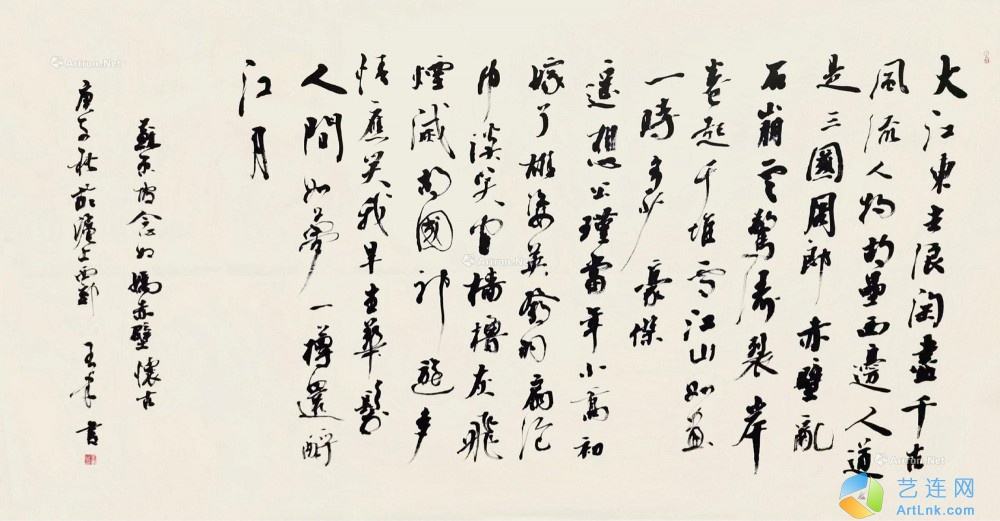 大江東去浪淘盡千古
風流人物故壘西邊人道
是三國周郎赤壁亂
石崩雲驚濤裂岸
卷起千堆雪江山如畫
一時多少豪傑
遙想公瑾當年小喬初
嫁了雄姿英發羽扇綸
巾談笑間檣櫓灰飛
煙滅故國神遊多
情應笑我早生華髮
人間如夢一樽還酹
江月
蘇東坡念奴嬌赤壁懷古
庚子秋於滬上西郊 王 書
Artron.Net
Artron.Net
Artron.Net
Artron.Net
艺连网
ArtLnk.com